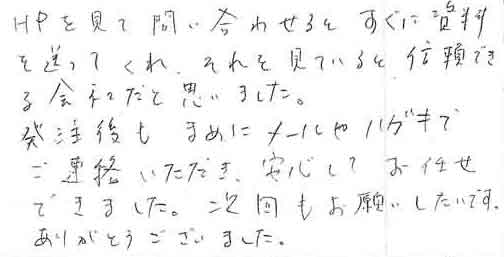 HPを見て問い合わせると すぐに資料
を送ってくれ、それを見ていると信頼でき
る会社だと思いました。
発注後も まめにメールやハガキで
ご連絡いただき、安心してお任せ
できました。次回もお願いしたいです。
ありがとうございました。